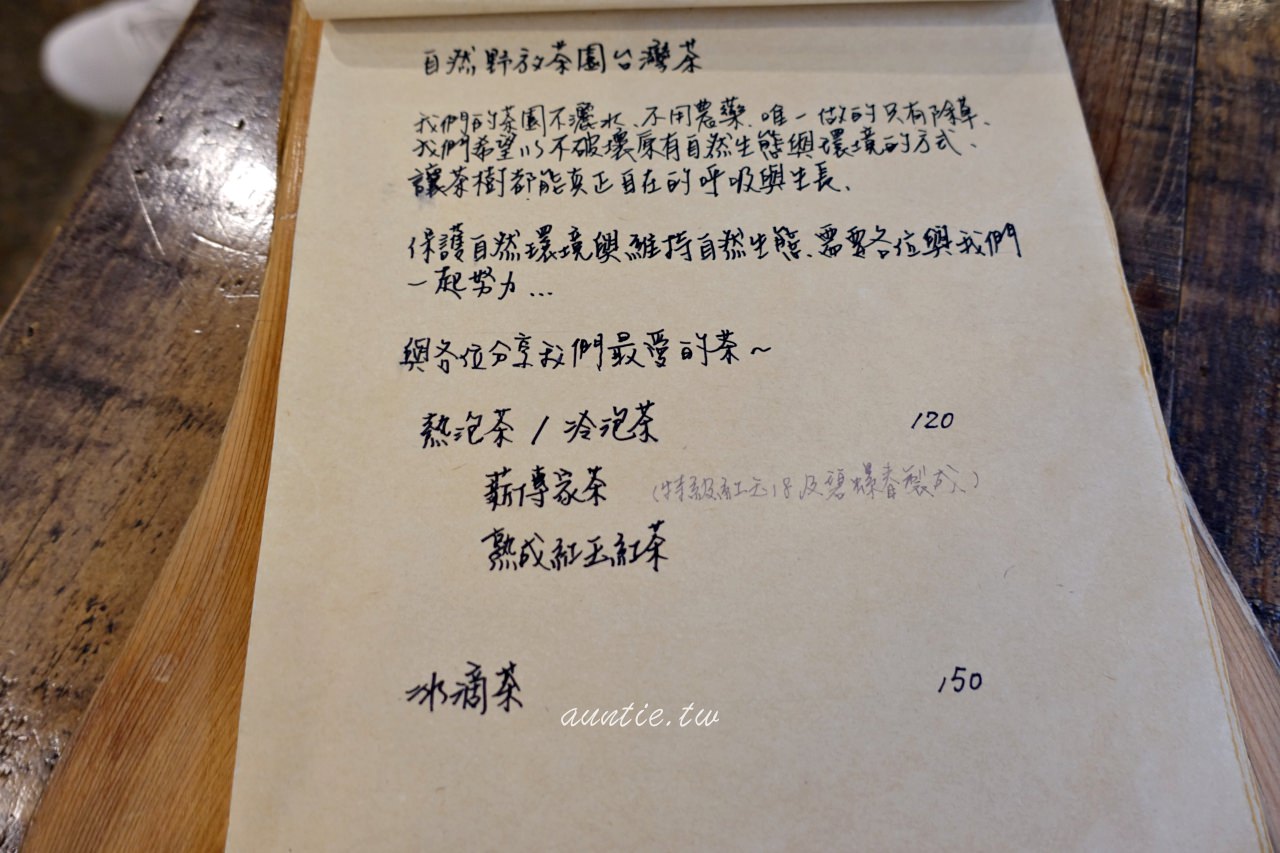 自然野放茶園台灣茶
我們的茶園不灑水、不用農藥、唯一做的只有除草、
我們希望以不破壞原有自然生態與環境的方式、
讓茶樹都能真正自在的呼吸與生長、
保護自然環境與維持自然生態、需要各位與我們
一起努力...
與各位分享我們最愛的茶~
熱泡茶 / 冷泡茶 120
薪傳家茶 (特級紅玉18及碧螺春製成)
熟成紅玉紅茶
冰滴茶 150
auntie.tw